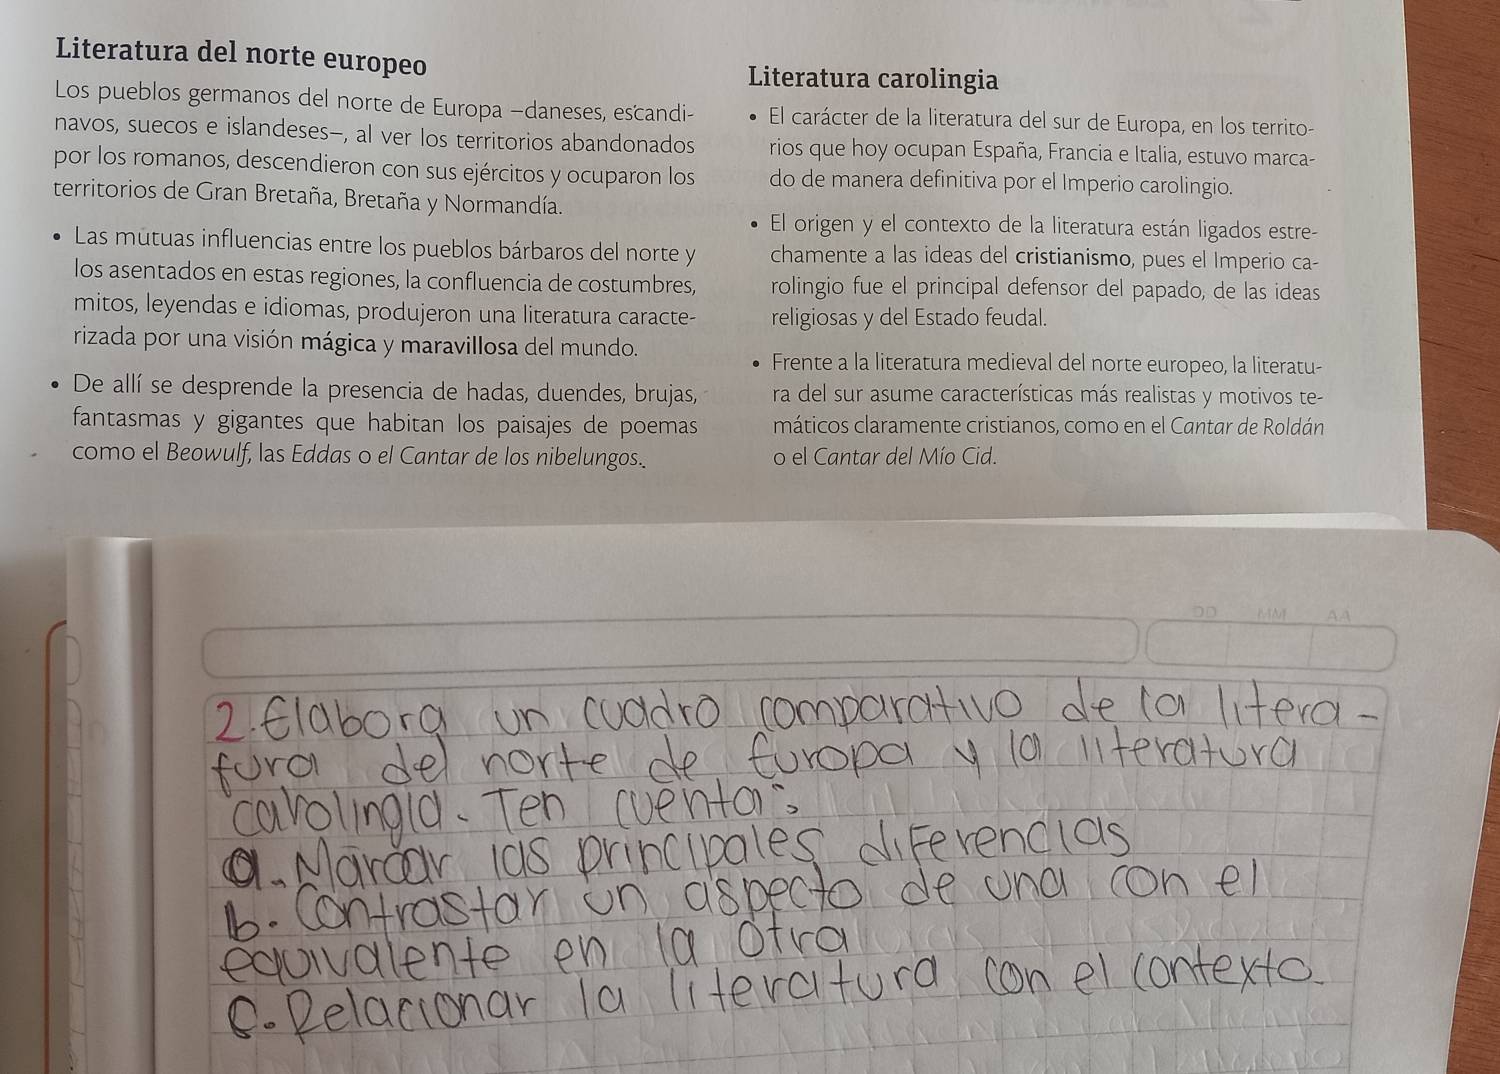 Literatura del norte europeo
Los pueblos germanos del norte de Europa –daneses, escandi-
navos, suecos e islandeses–, al ver los territorios abandonados
por los romanos, descendieron con sus ejércitos y ocuparon los
territorios de Gran Bretaña, Bretaña y Normandía.
• Las mutuas influencias entre los pueblos bárbaros del norte y
los asentados en estas regiones, la confluencia de costumbres,
mitos, leyendas e idiomas, produjeron una literatura caracte-
rizada por una visión mágica y maravillosa del mundo.
• De allí se desprende la presencia de hadas, duendes, brujas,
fantasmas y gigantes que habitan los paisajes de poemas
como el Beowulf, las Eddas o el Cantar de los nibelungos.
Literatura carolingia
• El carácter de la literatura del sur de Europa, en los territo-
rios que hoy ocupan España, Francia e Italia, estuvo marca-
do de manera definitiva por el Imperio carolingio.
• El origen y el contexto de la literatura están ligados estre-
chamente a las ideas del cristianismo, pues el Imperio ca-
rolingio fue el principal defensor del papado, de las ideas
religiosas y del Estado feudal.
• Frente a la literatura medieval del norte europeo, la literatu-
ra del sur asume características más realistas y motivos te-
máticos claramente cristianos, como en el Cantar de Roldán
o el Cantar del Mío Cid.
DD MM AA
2. Elabora un cuadro comparativo de la litera-
tura del norte de Europa y la literatura
carolingia. Ten cuenta:
a. Marcar las principales diferencias
b. Contrastar un aspecto de una con el
equivalente en la otra
c. Relacionar la literatura con el contexto.